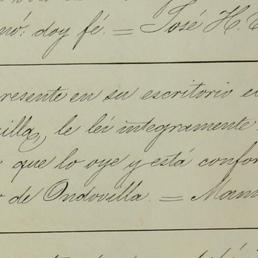 mó: doy fé. = José H.
presente en su escritorio e
illa, le leí integramente
que lo oye y está confor
de Ondovilla. = Man